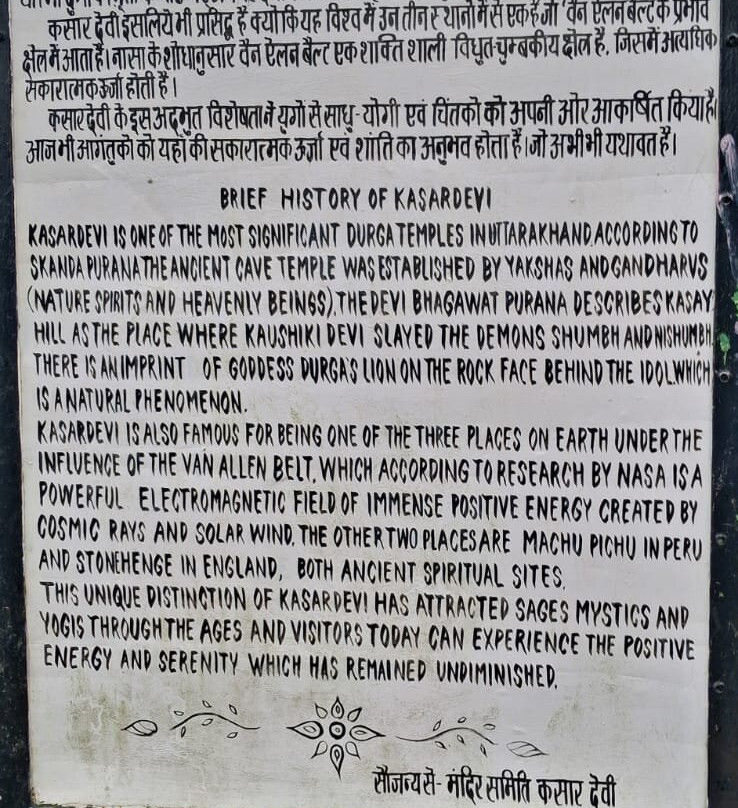 कसार देवी इसलिये भी प्रसिद्ध है क्योकि यह विश्व में उन तीन स्थानो में से एक है जो वैन ऐलन बेल्ट के प्रभाव
क्षेत्र में आता है। नासा के शोधानुसार वैन ऐलन बैल्ट एक शक्ति शाली विधुत-चुम्बकीय क्षेत्र है, जिसमें अत्यधिक
सकारात्मक ऊर्जा होती है।
कसार देवी के इस अदभुत विशेषता ने युगो से साधु-योगी एवं चिंतको को अपनी ओर आकर्षित किया है।
आज भी आगतुको को यहां की सकारात्मक ऊर्जा एवं शांति का अनुभव होता है। जो अभी भी यथावत है।
BRIEF HISTORY OF KASARDEVI
KASARDEVI IS ONE OF THE MOST SIGNIFICANT DURGA TEMPLES IN UTTARAKHAND. ACCORDING TO
SKANDA PURANA THE ANCIENT CAVE TEMPLE WAS ESTABLISHED BY YAKSHAS AND GANDHARVS
(NATURE SPIRITS AND HEAVENLY BEINGS). THE DEVI BHAGAWAT PURANA DESCRIBES KASAY
HILL AS THE PLACE WHERE KAUSHIKI DEVI SLAYED THE DEMONS SHUMBH AND NISHUMBH.
THERE IS AN IMPRINT OF GODDESS DURGA'S LION ON THE ROCK FACE BEHIND THE IDOL WHICH
IS A NATURAL PHENOMENON.
KASARDEVI IS ALSO FAMOUS FOR BEING ONE OF THE THREE PLACES ON EARTH UNDER THE
INFLUENCE OF THE VAN ALLEN BELT, WHICH ACCORDING TO RESEARCH BY NASA IS A
POWERFUL ELECTROMAGNETIC FIELD OF IMMENSE POSITIVE ENERGY CREATED BY
COSMIC RAYS AND SOLAR WIND. THE OTHER TWO PLACES ARE MACHU PICHU IN PERU
AND STONEHENGE IN ENGLAND, BOTH ANCIENT SPIRITUAL SITES.
THIS UNIQUE DISTINCTION OF KASARDEVI HAS ATTRACTED SAGES MYSTICS AND
YOGIS THROUGH THE AGES AND VISITORS TODAY CAN EXPERIENCE THE POSITIVE
ENERGY AND SERENITY WHICH HAS REMAINED UNDIMINISHED.
सौजन्य से- मंदिर समिति कसार देवी